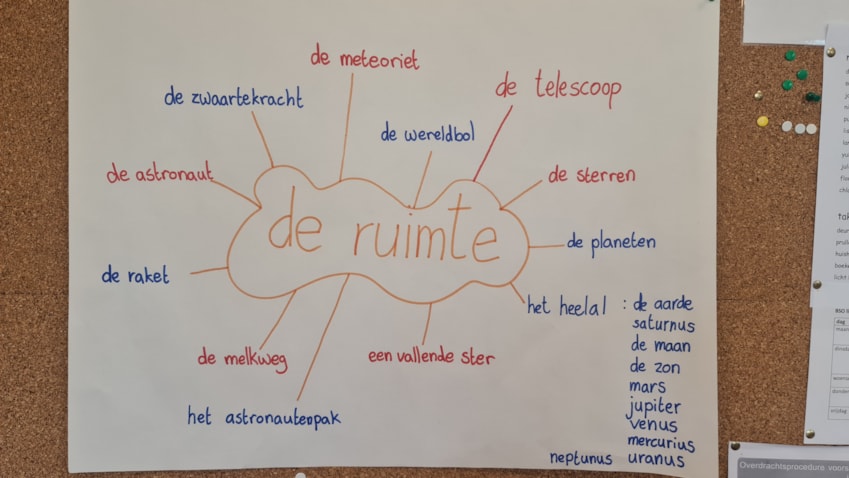 de meteoriet
de telescoop
de zwaartekracht
de wereldbol
de astronaut
de sterren
de ruimte
de planeten
de raket
het heelal : de aarde
saturnus
de maan
de zon
mars
jupiter
venus
mercurius
neptunus uranus
de melkweg
een vallende ster
het astronautenpak
Overdrachtsprocedure voors